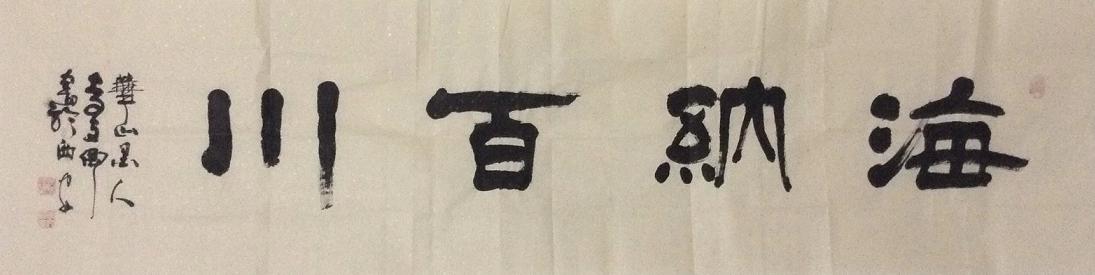 海納百川
華山墨人
書於西安